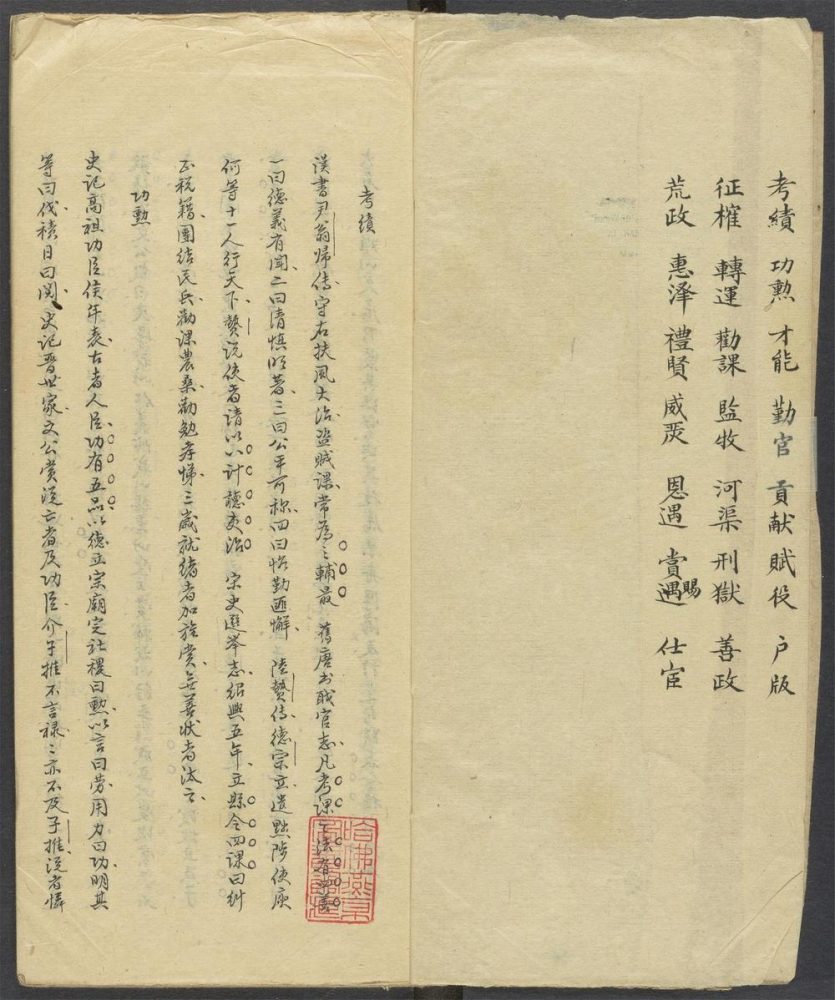 考績 功勲 才能 勤官 貢献 賦役 户版
征榷 轉運 勸課 監收 河渠 刑獄 善政
荒政 惠泽 禮賢 威 恩遇 賞遇賜 仕宦
考績
漢書尹翁歸傳守右扶風大治盗贼課常爲三輔最 舊唐書職官志凡考課之法有四善
一曰德義有聞二曰清慎明著三曰公平可称四曰恪勤匪懈 陸贄传德宗立遣黜陟使庾
何等十一人行天下贄说使者請以八计聽吏治 宋史選举志绍興五年立縣令四课曰糾
正税籍團结民兵勸课農桑勸勉孝悌三歲就绪者加旌賞無善状者汰之
功勲
史记高祖功臣侯年表古者人臣功有五品以德立宗廟定社稷曰勲以言曰劳用力曰功明其
等曰伐積日曰閲 史记晋世家文公赏從亡者及功臣介子推不言禄禄亦不及子推從者憐
哈佛燕京